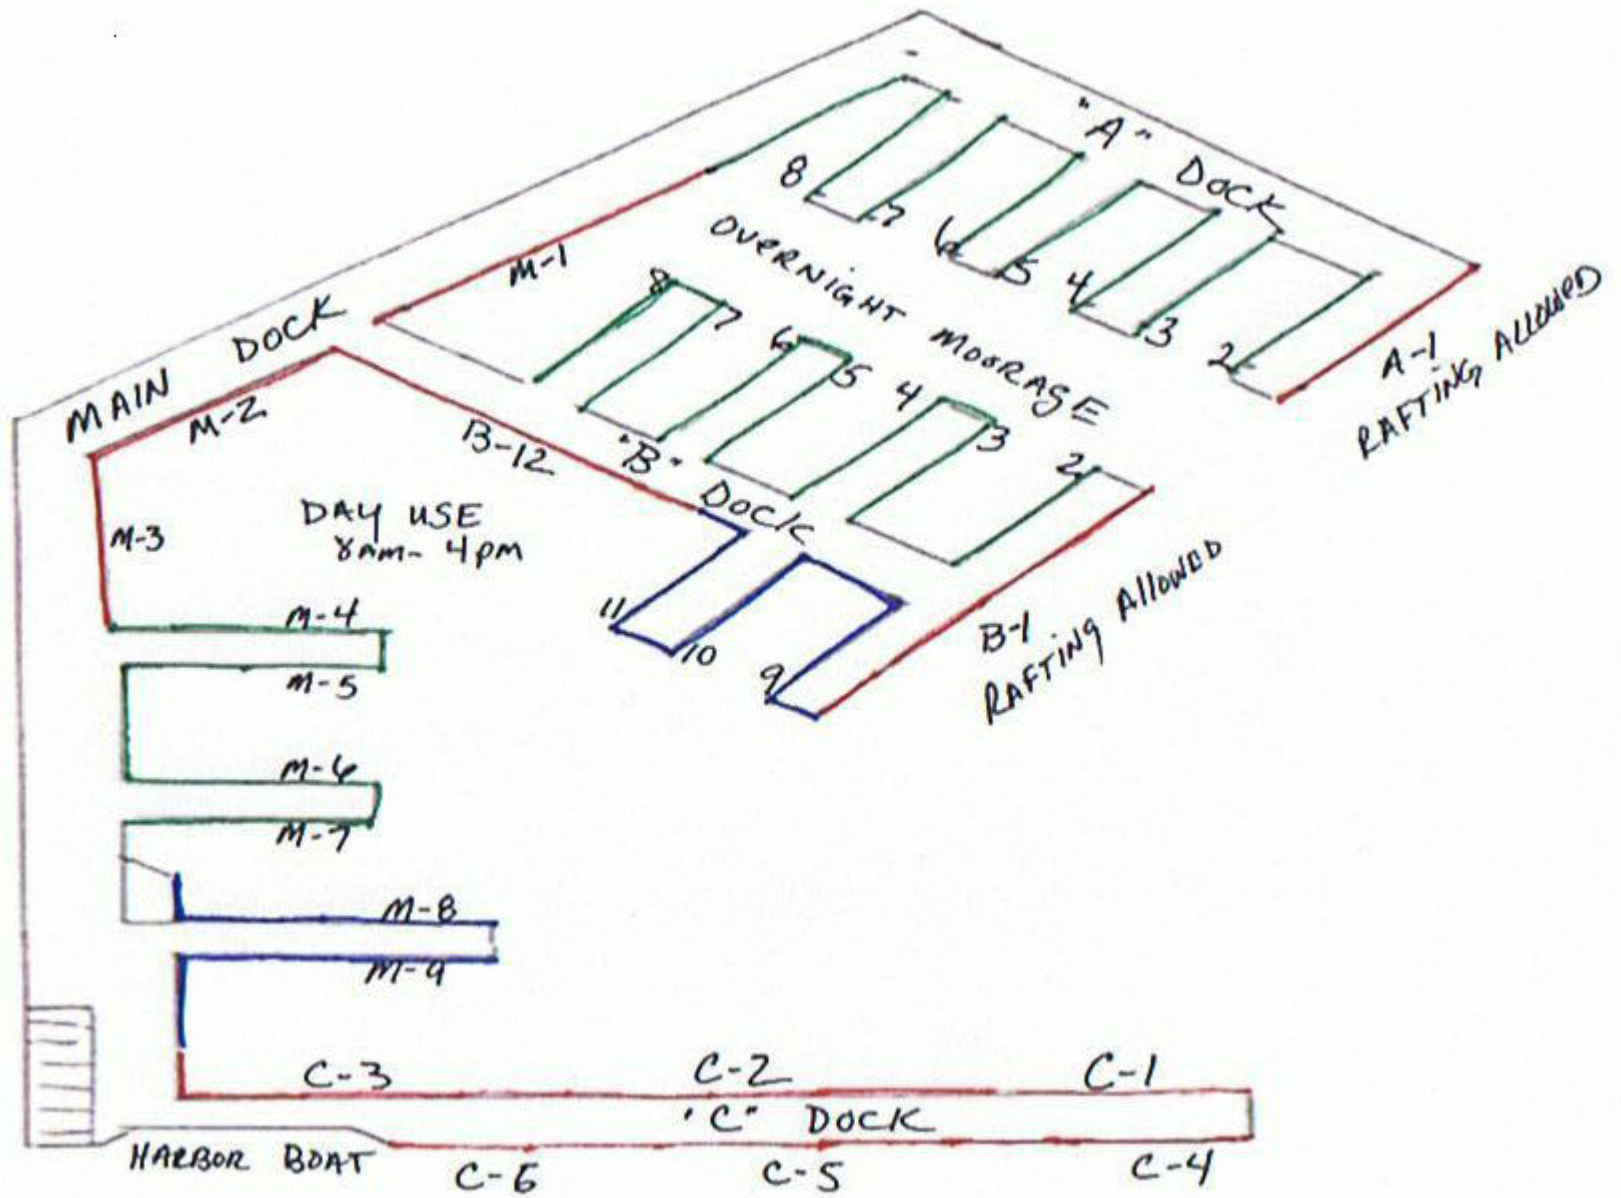 "A" DOCK
8
7
6
5
4
3
2
A-1
RAFTING ALLOWED
OVERNIGHT MOORAGE
M-1
MAIN DOCK
M-2
8
7
6
5
4
3
2
B-12
"B" DOCK
B-1
RAFTING AllOWED
11
10
9
M-3
DAY USE
8am- 4pm
M-4
M-5
M-6
M-7
M-8
M-9
C-3
C-2
C-1
"C" DOCK
HARBOR BOAT
C-6
C-5
C-4